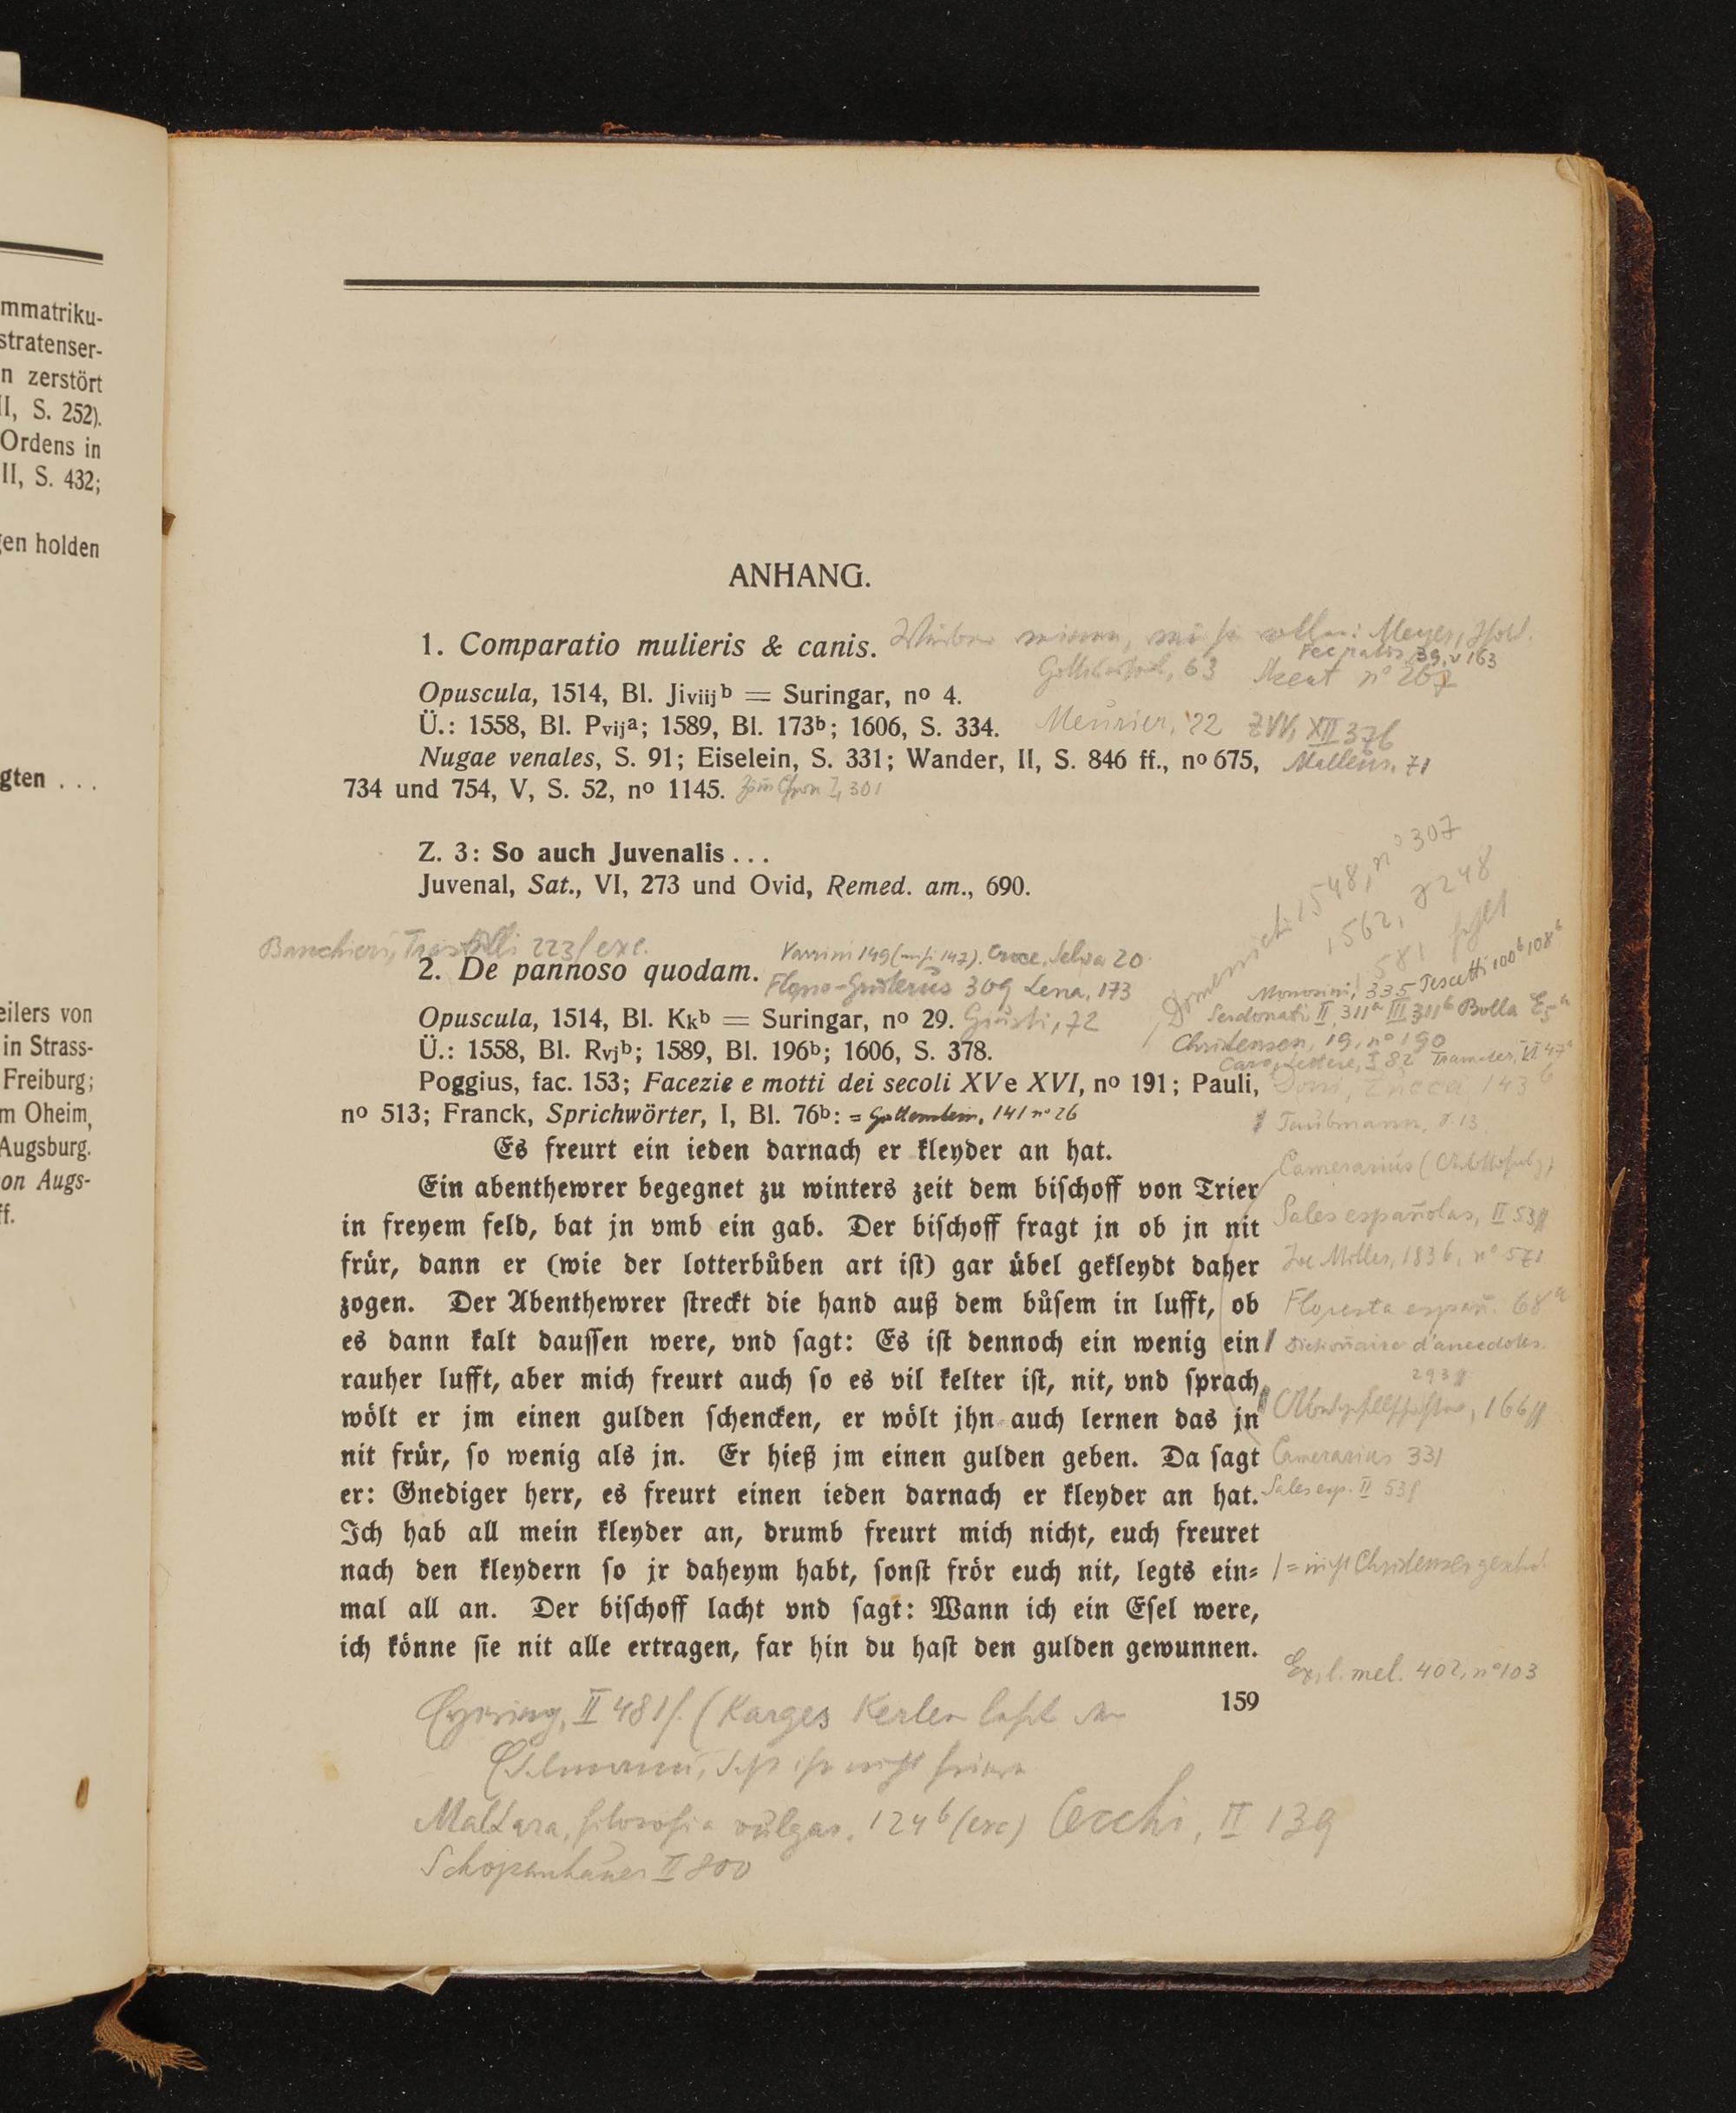 mmatriku-
stratenser-
n zerstört
II, S. 252).
Ordens in
II, S. 432;
gen holden
gten . . .
eilers von
in Strass-
Freiburg;
m Oheim,
Augsburg.
on Augs-
ff.
ANHANG.
1. Comparatio mulieris & canis.
Meyer,
39, v 163
63 n° 267
Opuscula, 1514, Bl. Jiviijb = Suringar, no 4.
Ü.: 1558, Bl. Pvija; 1589, Bl. 173b; 1606, S. 334. Meurier, 22 ZVV, XII 376
Nugae venales, S. 91; Eiselein, S. 331; Wander, II, S. 846 ff., no 675,
71
734 und 754, V, S. 52, no 1145. I, 301
Z. 3: So auch Juvenalis . . .
Juvenal, Sat., VI, 273 und Ovid, Remed. am., 690.
1548, n° 307
1562, 248
1581, fehlt
Banchieri, Trastulli 223f exc.
Croce, Selva 20
2. De pannoso quodam.
309 Lena, 173
Monosini, 335 Pescetti 100b, 108b
Serdonati II, 311a III 311b Bolla E5a
Opuscula, 1514, Bl. Kkb = Suringar, no 29. Giusti, 72
Christensen, 19, n° 190
Ü.: 1558, Bl. Rvjb; 1589, Bl. 196b; 1606, S. 378.
Caro, Lettere, I 82
Poggius, fac. 153; Facezie e motti dei secoli XV e XVI, no 191; Pauli,
Doni, Zucca 143b
no 513; Franck, Sprichwörter, I, Bl. 76b: = Guttenstein, 141 n° 26
Taubmann, 13
Es freurt ein ieden darnach er kleyder an hat.
Camerarius
Ein abenthewrer begegnet zu winters zeit dem bischoff von Trier
in freyem feld, bat jn vmb ein gab. Der bischoff fragt jn ob jn nit
Sales españolas, II 53ff
frür, dann er (wie der lotterbůben art ist) gar übel gekleydt daher
Joe Miller, 1836, n° 571
zogen. Der Abenthewrer streckt die hand auß dem bůsem in lufft, ob
Floresta españ. 68a
es dann kalt daussen were, vnd sagt: Es ist dennoch ein wenig ein
Dictionnaire d'anecdotes
293
rauher lufft, aber mich freurt auch so es vil kelter ist, nit, vnd sprach,
166ff
wölt er jm einen gulden schencken, er wölt jhn auch lernen das jn
nit frür, so wenig als jn. Er hieß jm einen gulden geben. Da sagt
Camerarius 331
er: Gnediger herr, es freurt einen ieden darnach er kleyder an hat.
Sales esp. II 53f
Ich hab all mein kleyder an, drumb freurt mich nicht, euch freuret
nach den kleydern so jr daheym habt, sonst frör euch nit, legts ein=
mal all an. Der bischoff lacht vnd sagt: Wann ich ein Esel were,
ich könne sie nit alle ertragen, far hin du hast den gulden gewunnen.
Exil. mel. 402, n° 103
159
Eyering, II 481f. (Karges Kerlen
Mal Lara, filosofia vulgar, 124b (exc) Cecchi, II 139
Schopenhauer II 800